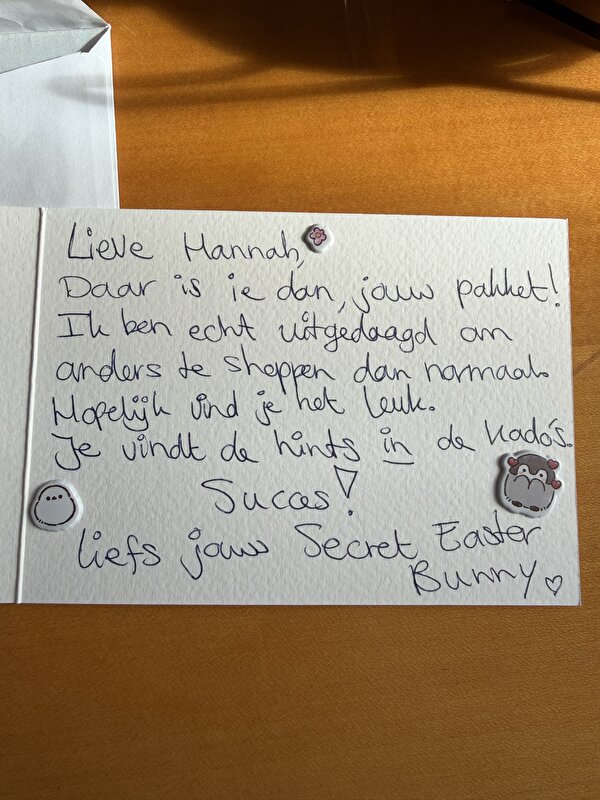 Lieve Hannah,
Daar is ie dan, jouw pakket!
Ik ben echt uitgedaagd om
anders te shoppen dan normaal.
Hopelijk vind je het leuk.
Je vindt de hints in de kado's.
Succes!
liefs jouw Secret Easter
Bunny ♡